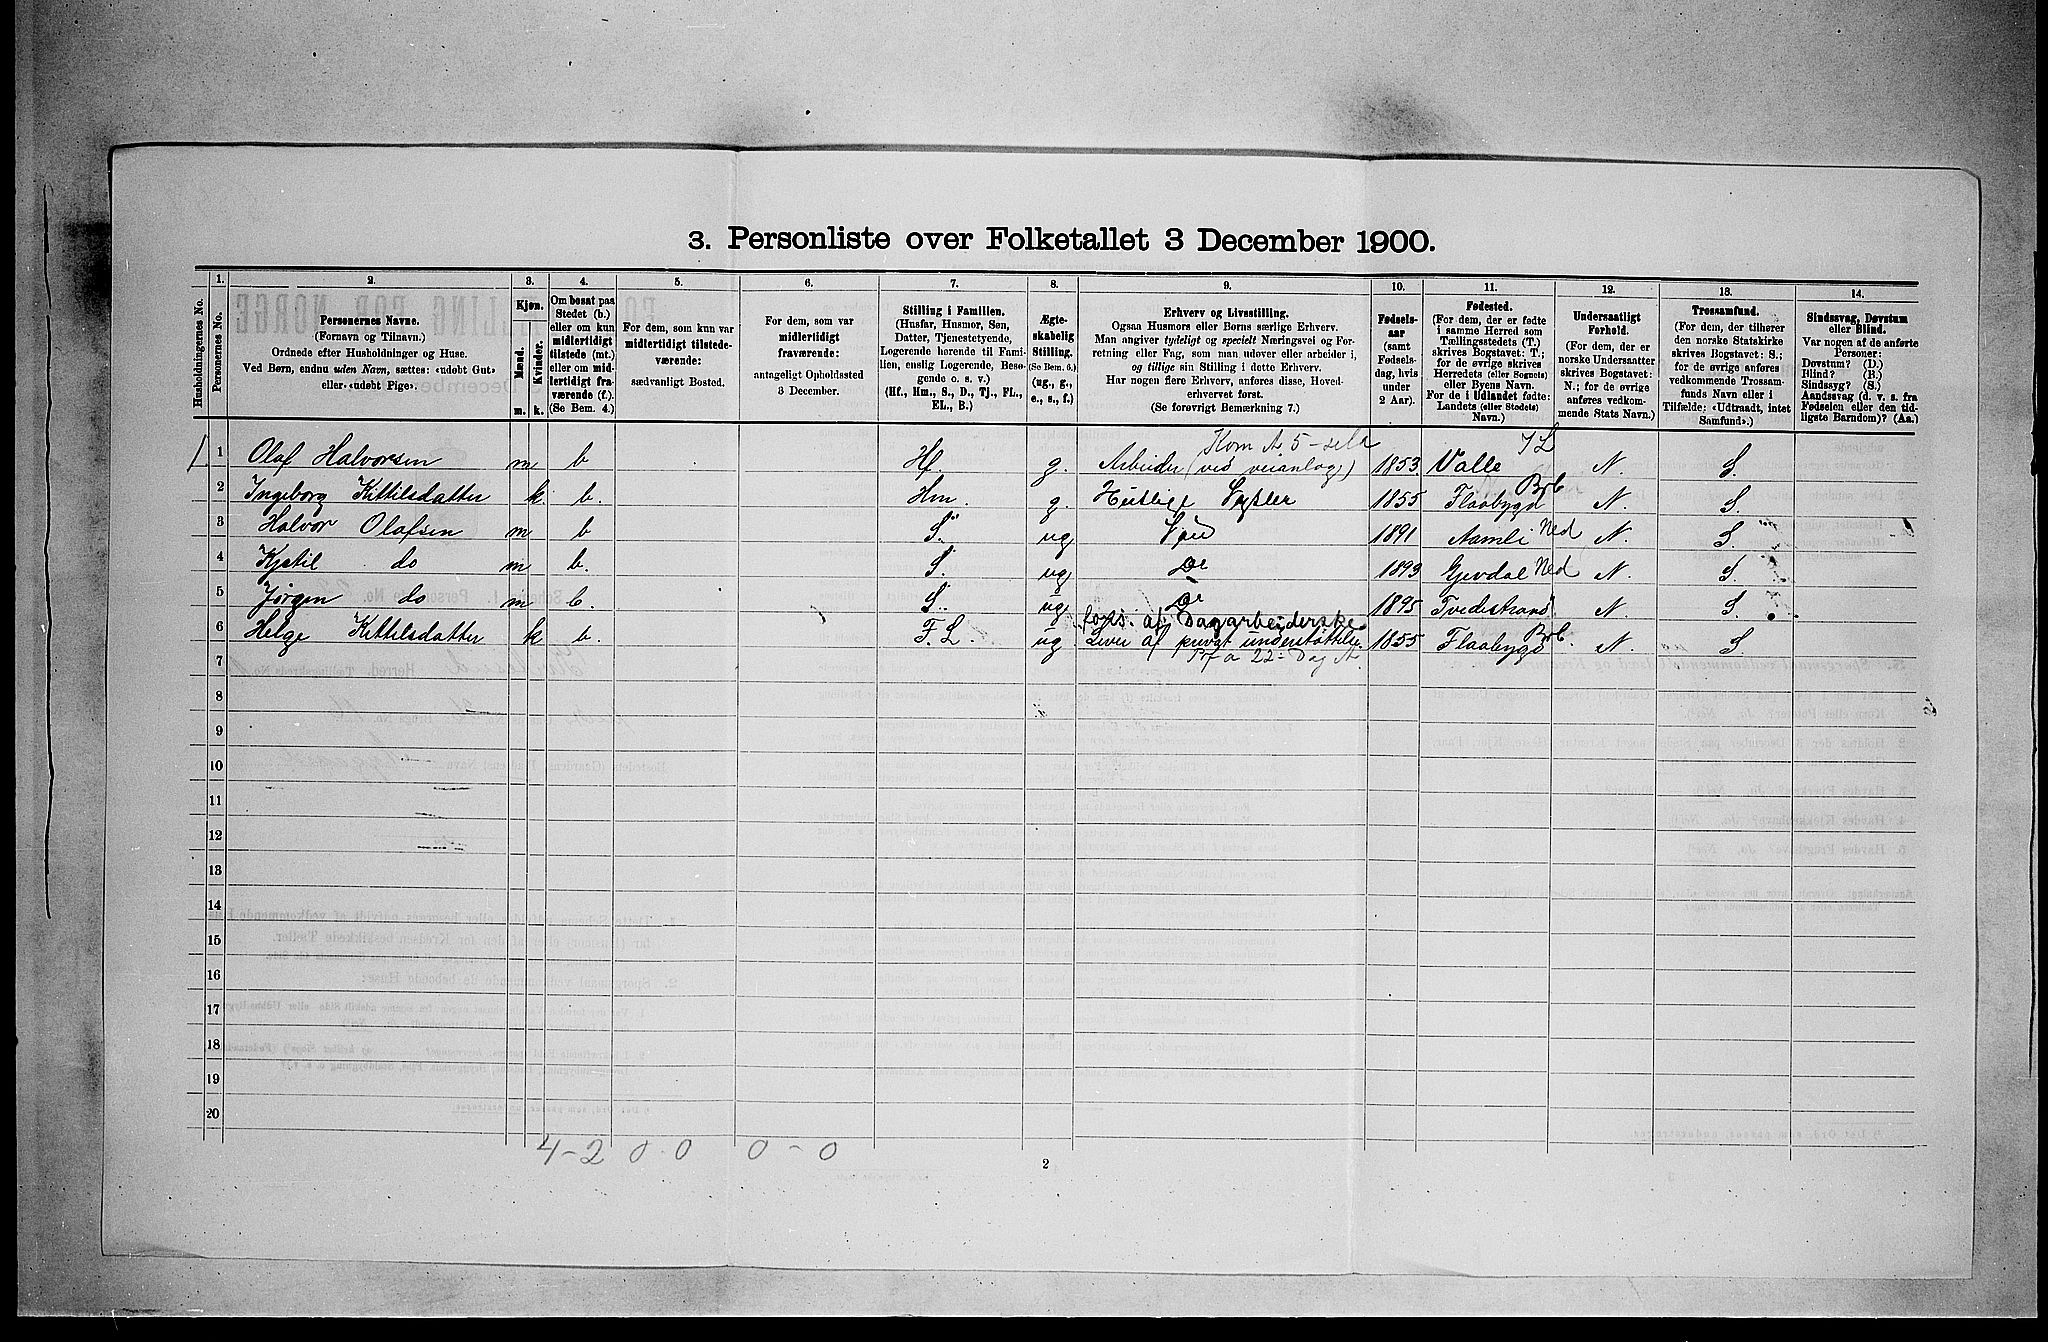 3. Personliste over Folketallet 3 December 1900.
Husholdningernes No.
1.
Personernes No.
2.
Personernes Navne.
(Fornavn og Tilnavn.)
Ordnede efter Husholdninger og Huse.
Ved Børn, endnu uden Navn, sættes: «udøbt Gut»
eller «udøbt Pige».
3.
Kjøn.
Mænd.
Kvinder.
m.
k.
4.
Om bosat paa
Stedet (b.)
eller om kun
midlertidigt
tilstede (mt.)
eller om mid-
lertidigt fra-
værende (f.).
(Se Bem. 4.)
5.
For dem, som kun var
midlertidigt tilstede-
værende:
sædvanligt Bosted.
6.
For dem, som var
midlertidigt
fraværende:
antageligt Opholdssted
3 December.
7.
Stilling i Familien.
(Husfar, Husmor, Søn,
Datter, Tjenestetyende,
Logerende hørende til Fami-
lien, enslig Logerende, Besø-
gende o. s. v.)
(Hf., Hm., S., D., Tj., FL.,
EL., B.)
8.
Ægte-
skabelig
Stilling.
(Se Bem. 6.)
(ug., g.,
e., s., f.)
9.
Erhverv og Livsstilling.
Ogsaa Husmors eller Børns særlige Erhverv.
Man angiver tydeligt og specielt Næringsvei og For-
retning eller Fag, som man udøver eller arbeider i,
og tillige sin Stilling i dette Erhverv.
Har nogen flere Erhverv, anføres disse, Hoved-
erhvervet først.
(Se forøvrigt Bemærkning 7.)
10.
Fødsels-
aar
(samt
Fødsels-
dag, hvis
under
2 Aar).
11.
Fødested.
(For dem, der er fødte
i samme Herred som
Tællingsstedets (T.)
skrives Bogstavet: T.;
for de øvrige skrives
Herredets (eller Sognets)
eller Byens Navn.
For de i Udlandet fødte:
Landets (eller Stedets)
Navn.)
12.
Undersaatligt
Forhold.
(For dem, der er
norske Undersaatter
skrives Bogstavet:
N.; for de øvrige
anføres vedkom-
mende Stats Navn.)
13.
Trossamfund.
(For dem, der tilhører
den norske Statskirke
skrives Bogstavet: S.;
for de øvrige anføres
vedkommende Trossam-
funds Navn eller i
Tilfælde: «Udtraadt, intet
Samfund».)
14.
Sindssvag, Døvstum
eller Blind.
Var nogen af de anførte
Personer:
Døvstum? (D.)
Blind? (B.)
Sindssyg? (S.)
Aandssvag (d. v. s. fra
Fødselen eller den tid-
ligste Barndom)? (Aa.)
Kom A 5 - sela
1. 1 Olaf Halvorsen m b Hf. g. Arbeider (ved veianlæg) 1853. Valle N. S.
2 Ingeborg Kittilsdatter k. b. Hm. g. Huslige Sysler 1855 Flaabygd Brb N. S.
3 Halvor Olafsen m b S. ug Søn 1891 Aamli Ned N. S.
4 Kjetil do m b. S. ug Do 1893 Gjevdal Ned N. S.
5 Jørgen do m b. S. ug Do 1895 Tvedestrand N. S.
fors. af Dagarbeiderske
6 Helge Kittilsdatter k b. F. L ug Lever af privat understøttelse 1855 Flaabygd Brb. N. S
7
8
9
10
11
12
13
14
15
16
17
18
19
20
4-2 0 0 0-0
2